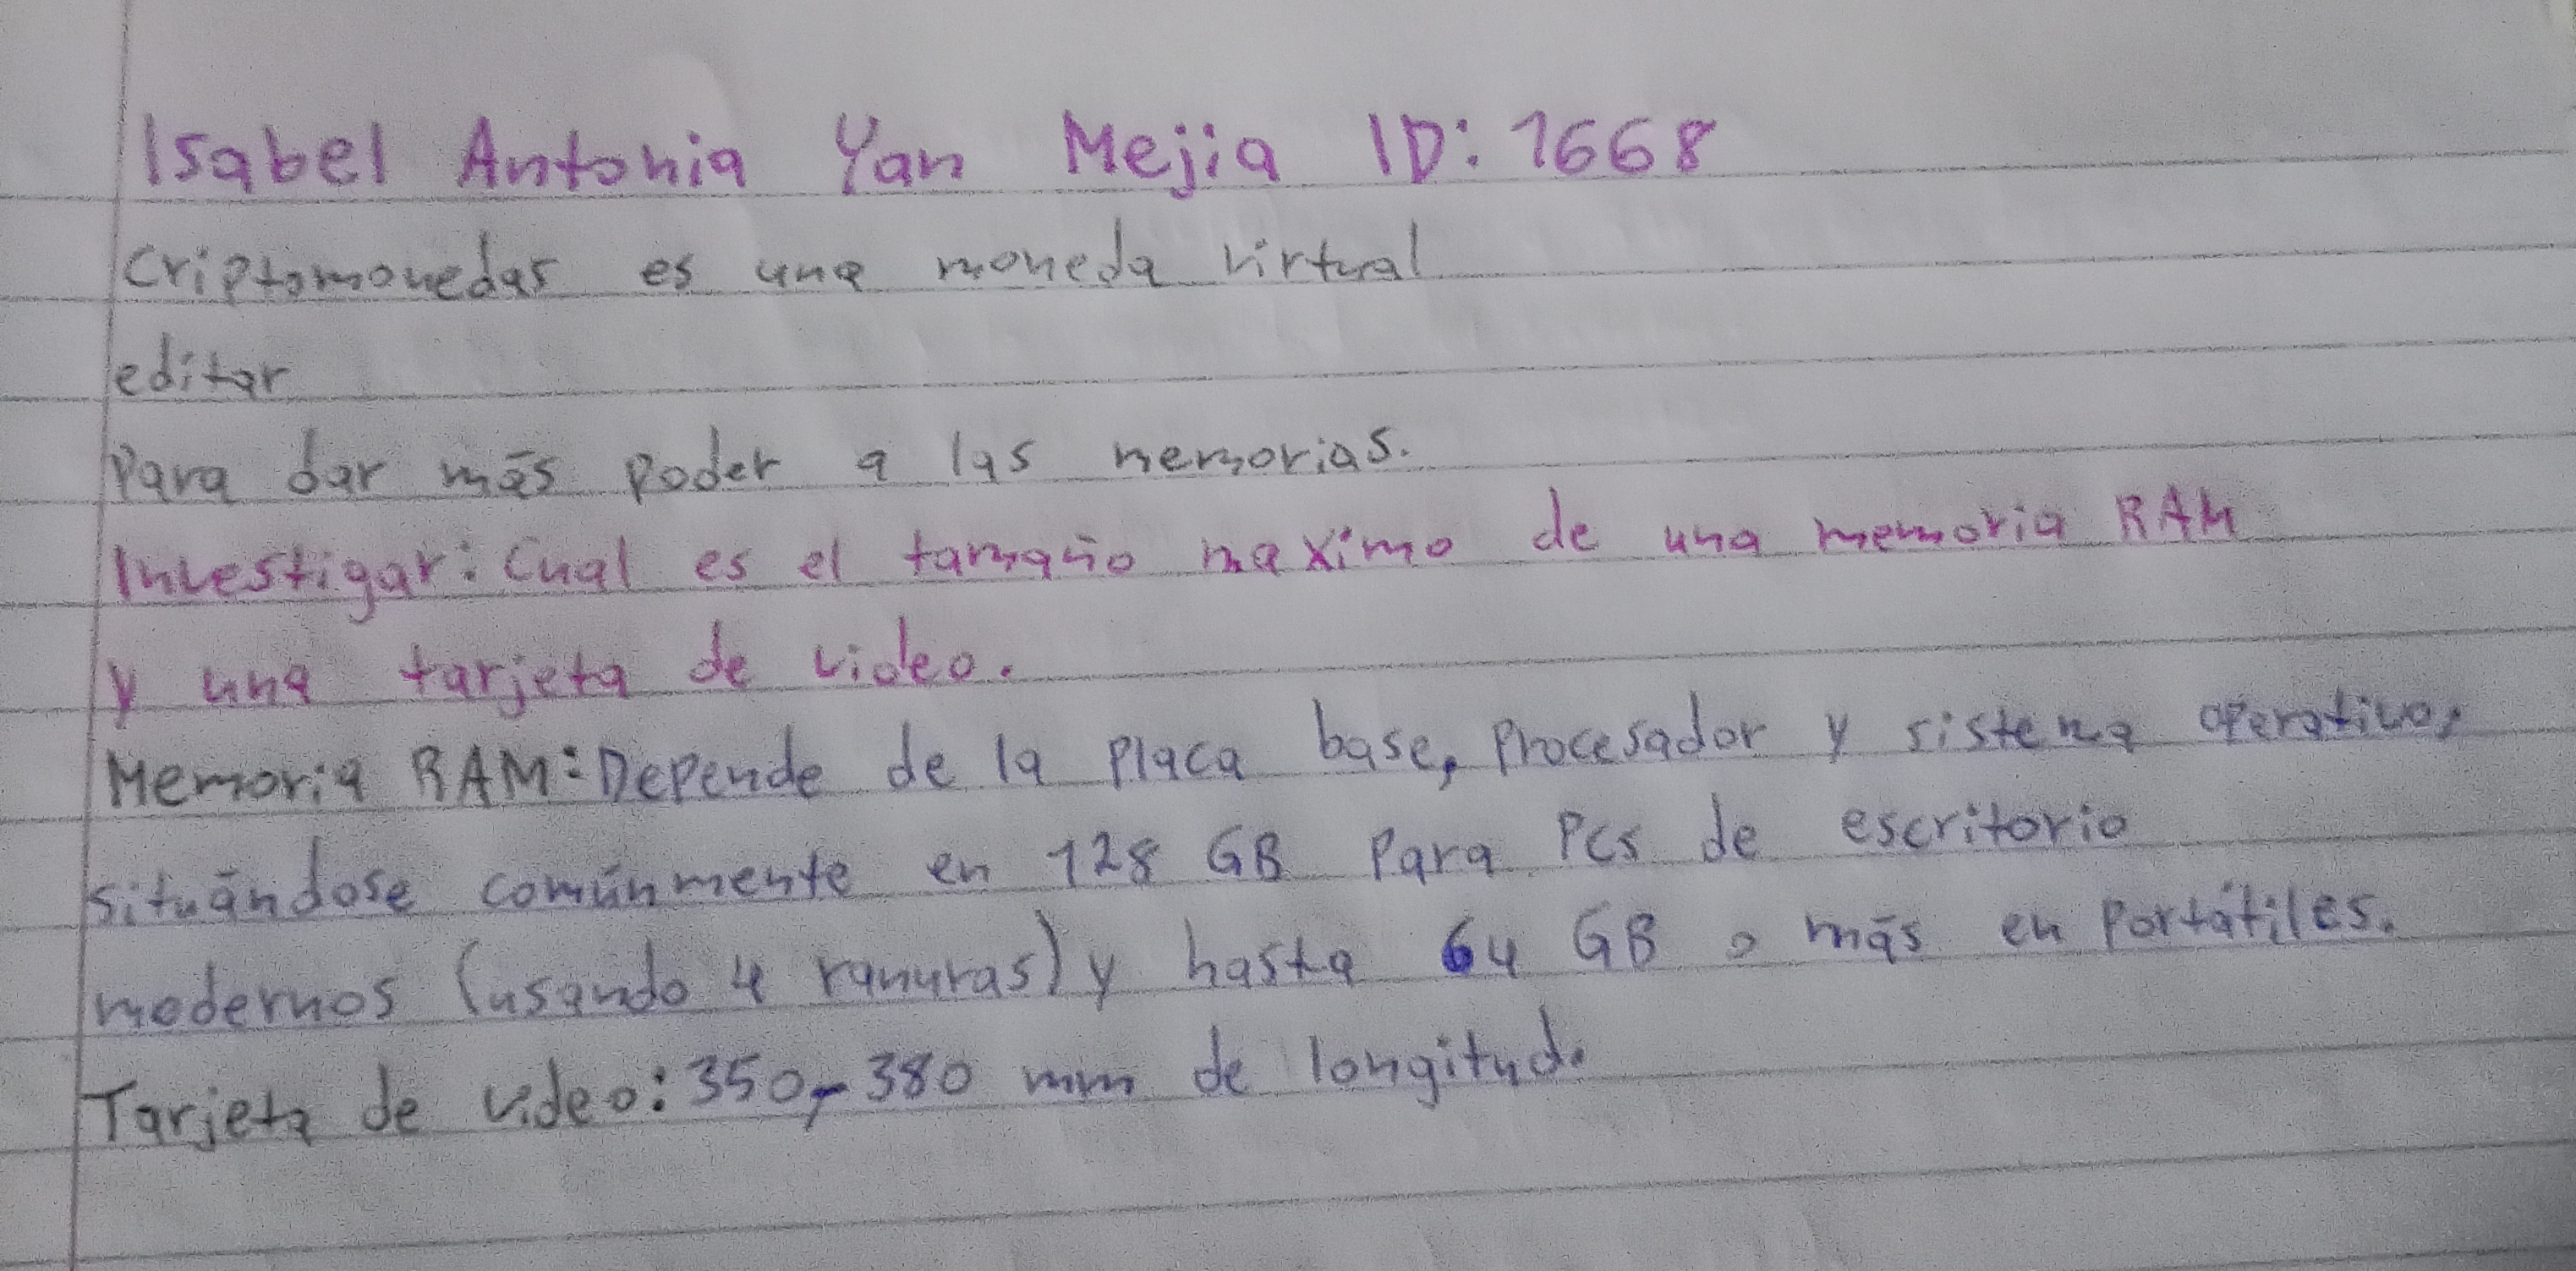 Isabel Antonia Yan Mejia ID: 1668
Criptomonedas es una moneda virtual
editar
Para dar más poder a las memorias.
Investigar: Cual es el tamaño maximo de una memoria RAM
y una tarjeta de video.
Memoria RAM: Depende de la placa base, procesador y sistema operativo,
situándose comúnmente en 128 GB para PCs de escritorio
modernos (usando 4 ranuras) y hasta 64 GB o más en portátiles.
Tarjeta de video: 350-380 mm de longitud.